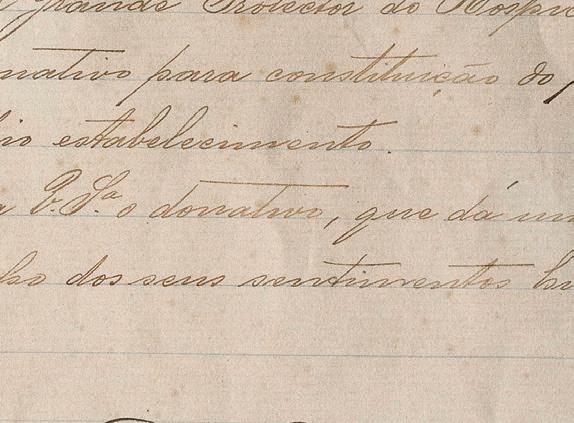 grande Protector do Hospi
nativo para constituição do
io estabelecimento.
a V. S.ª o donativo, que dá um
lho dos seus sentimentos hu